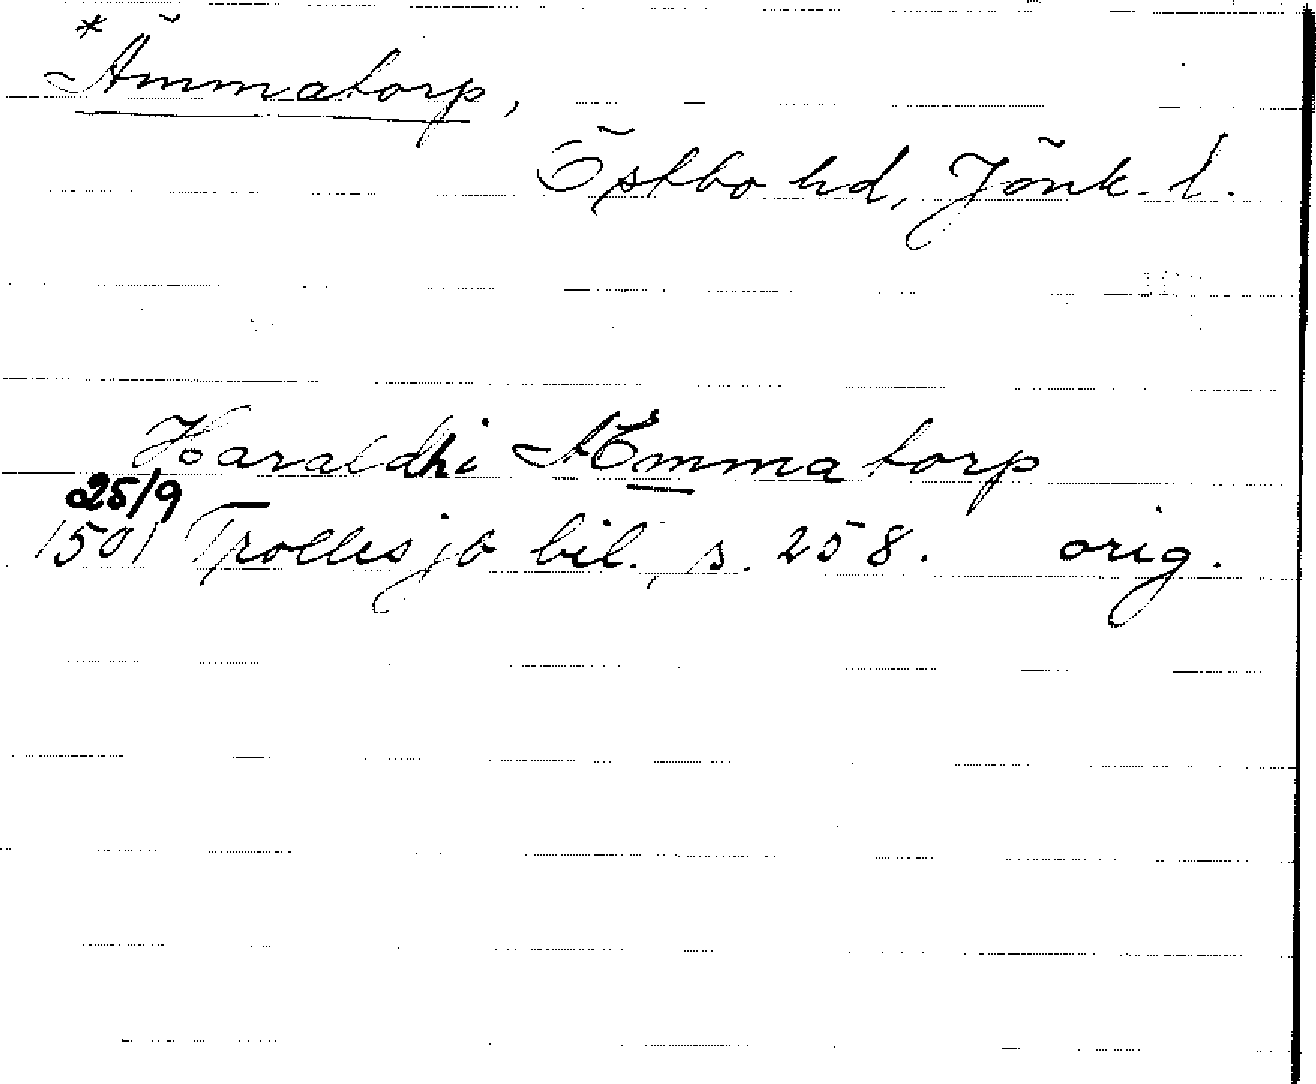 * Ämmatorp,
Östbo hd, Jönk. l.
Haraldhi Æmmatorp
25/9
1501 Trollesjö bil., s. 258. orig.